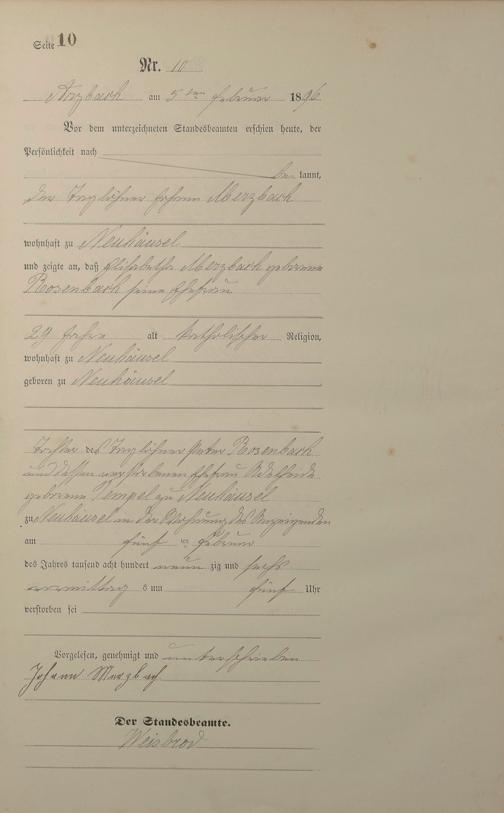 Seite 10
Nr. 10
Arzbach am 5ten Februar 1896
Vor dem unterzeichneten Standesbeamten erschien heute, der
Persönlichkeit nach
be kannt,
der Taglöhner Johann Merzbach
wohnhaft zu Neuhäusel
und zeigte an, daß Elisabetha Merzbach geborene
Rosenbach seine Ehefrau
29 Jahre alt katholischer Religion,
wohnhaft zu Neuhäusel
geboren zu Neuhäusel
Tochter des Taglöhner Peter Rosenbach
und dessen verstorbenen Ehefrau Adelheide
geborene Tempel zu Neuhäusel
zu Neuhäusel in der Wohnung des Anzeigenden
am fünf ten Februar
des Jahres tausend acht hundert neun zig und sechs
vormittag s um fünf Uhr
verstorben sei
Vorgelesen, genehmigt und unterschrieben
Johann Merzbach
Der Standesbeamte.
Weisbrod